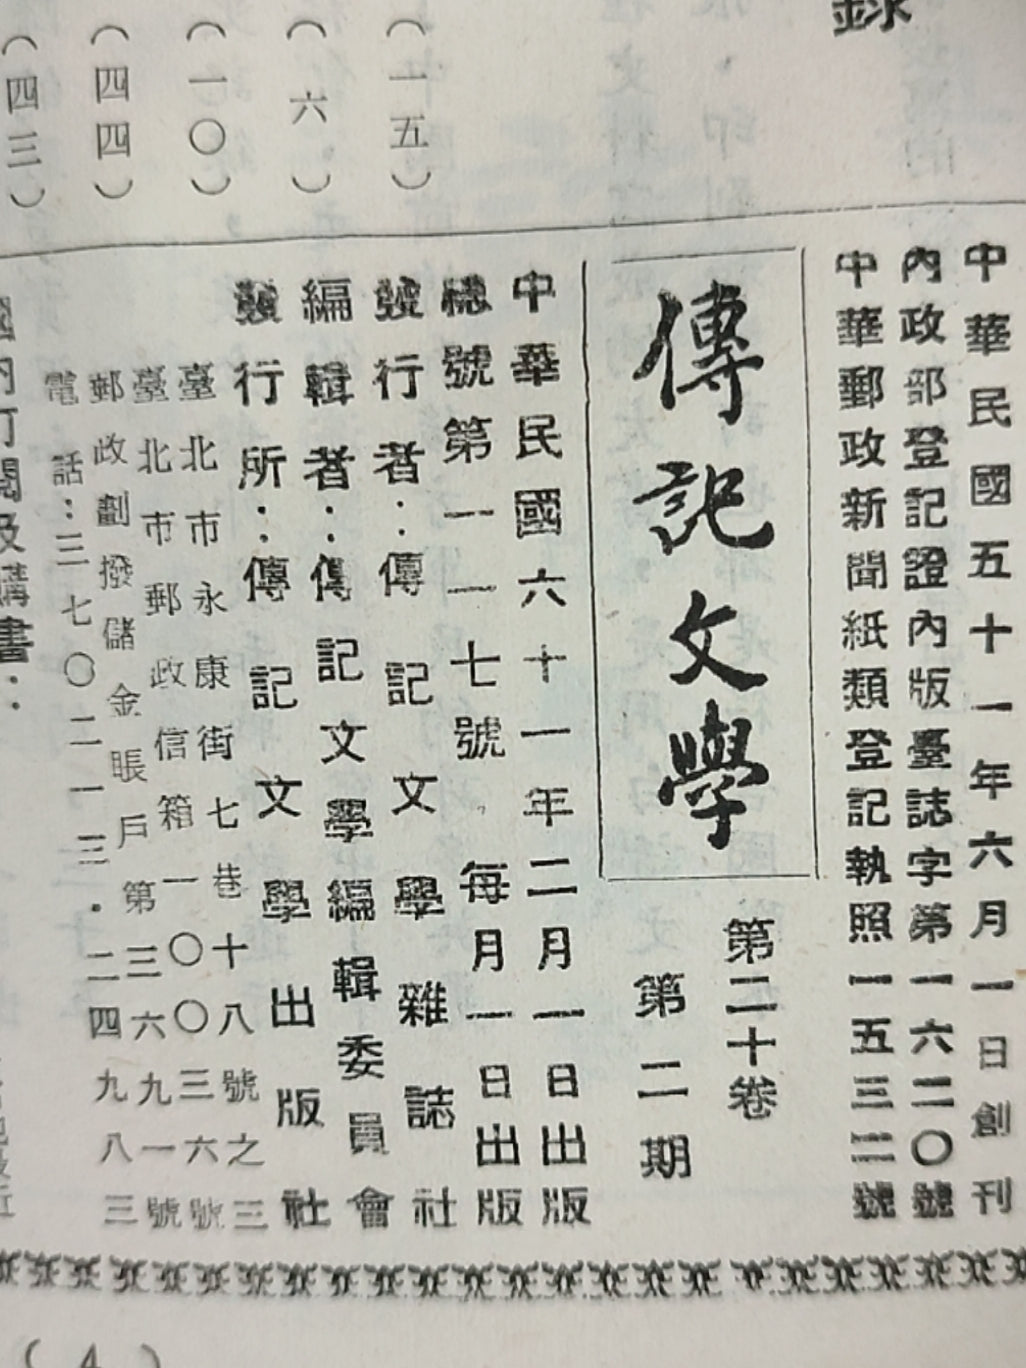 錄
（一五）
（六）
（一〇）
（四四）
（四三）
中華民國五十一年六月一日創刊
內政部登記證內版臺誌字第一六二〇號
中華郵政新聞紙類登記執照一五三二號
傳記文學
第二十卷
第二期
中華民國六十一年二月一日出版
總號第一一七號 每月一日出版
發行者：傳記文學雜誌社
編輯者：傳記文學編輯委員會
發行所：傳記文學出版社
臺北市永康街七巷十八號之三
臺北市郵政信箱一〇〇三六號
郵政劃撥儲金賬戶第三六九一號
電話：三七〇二一三·二四九八三
國內訂閱及購書：
（4）